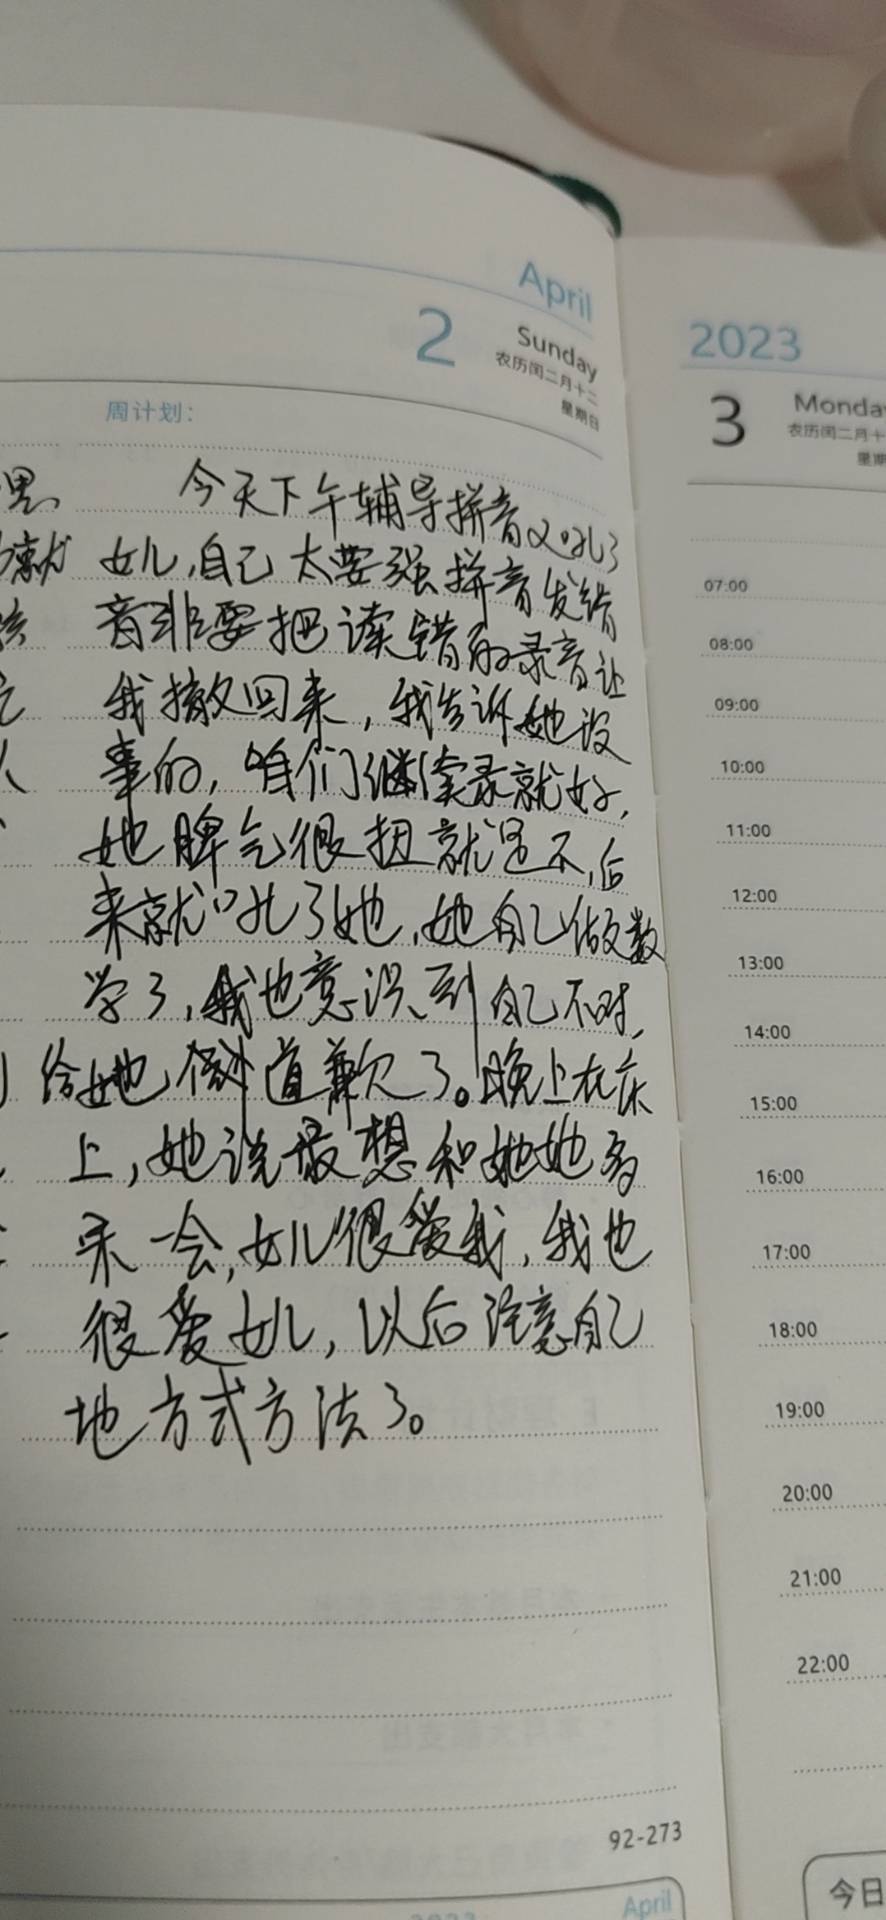 April
2 Sunday
农历闰二月十二
星期日
周计划:
今天下午辅导拼音又吼了
女儿,自己太要强拼音发错
音非要把读错的录音让
我撤回来,我告诉她没
事的,咱们继续录就好,
她脾气很扭就是不,后
来就吼了她,她自己做数
学了,我也意识到自己不对,
给她 道歉了。晚上在床
上,她说最想和她她多
呆一会,女儿很爱我,我也
很爱女儿,以后注意自己
地方式方法了。
92-273
April
2023
2023
3 Monday
农历闰二月十
星期
07:00
08:00
09:00
10:00
11:00
12:00
13:00
14:00
15:00
16:00
17:00
18:00
19:00
20:00
21:00
22:00
今日